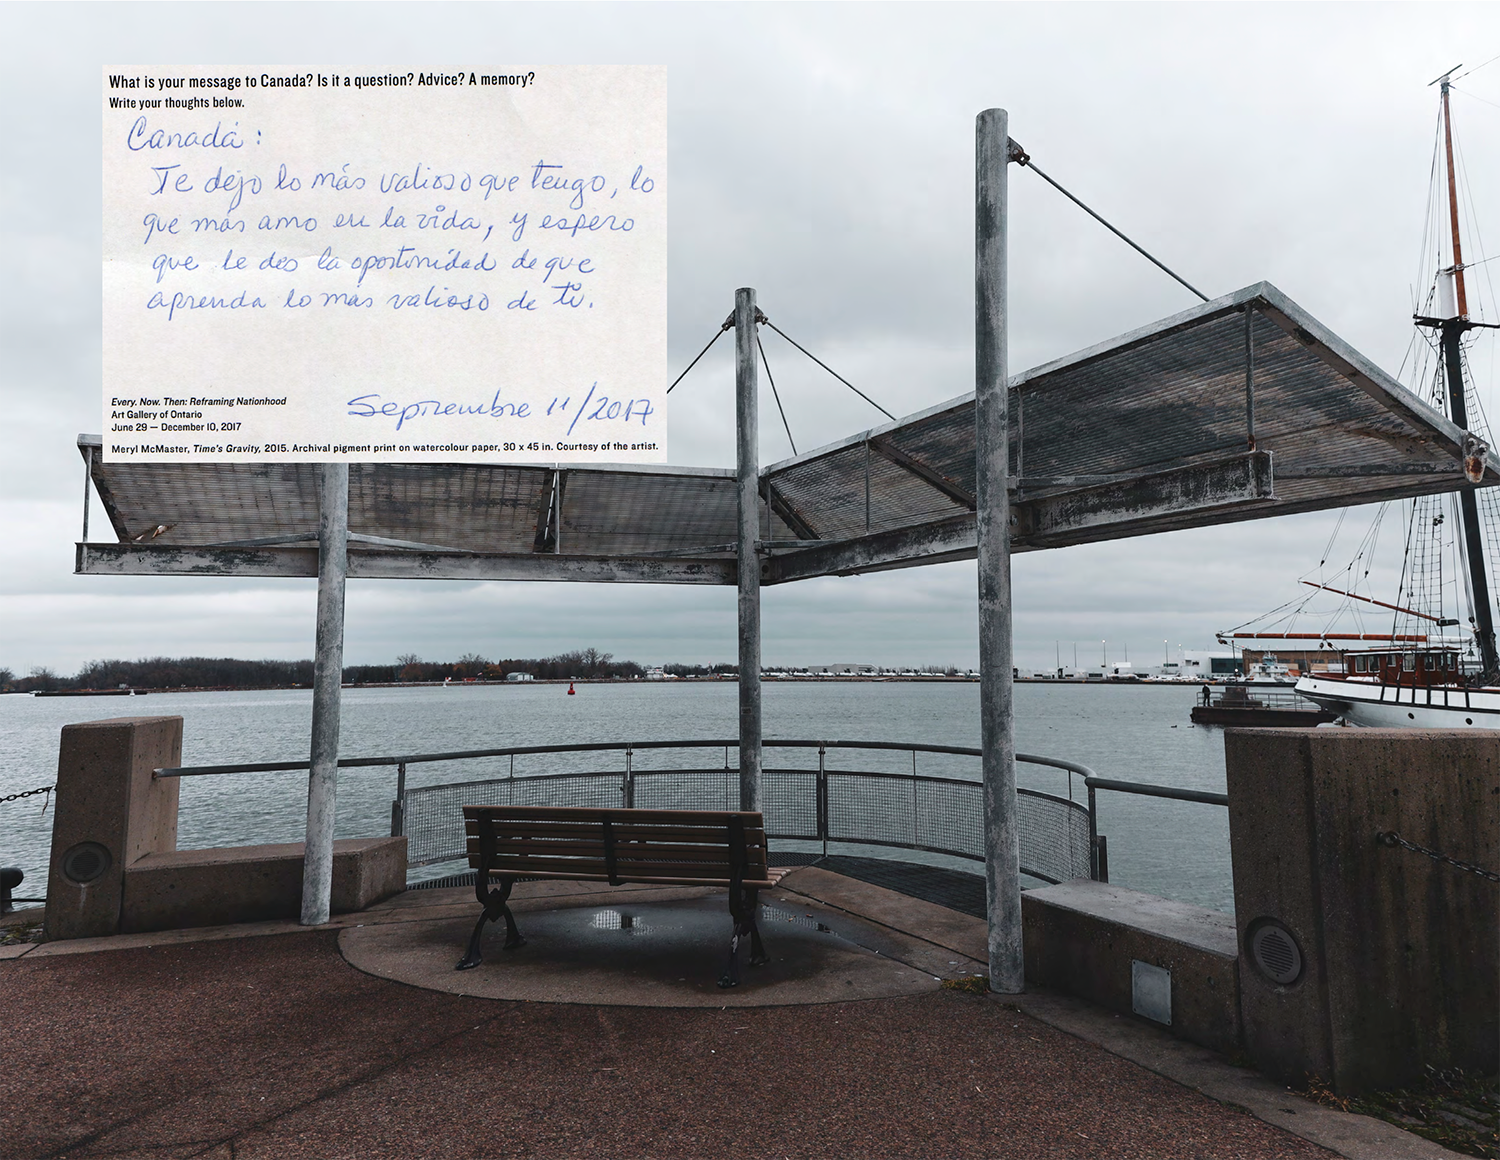 What is your message to Canada? Is it a question? Advice? A memory?
Write your thoughts below.
Canadá:
Te dejo lo más valioso que tengo, lo
que más amo en la vida, y espero
que le des la oportunidad de que
aprenda lo más valioso de ti.
Septiembre 11/2017
Every. Now. Then: Reframing Nationhood
Art Gallery of Ontario
June 29 — December 10, 2017
Meryl McMaster, Time's Gravity, 2015. Archival pigment print on watercolour paper, 30 x 45 in. Courtesy of the artist.